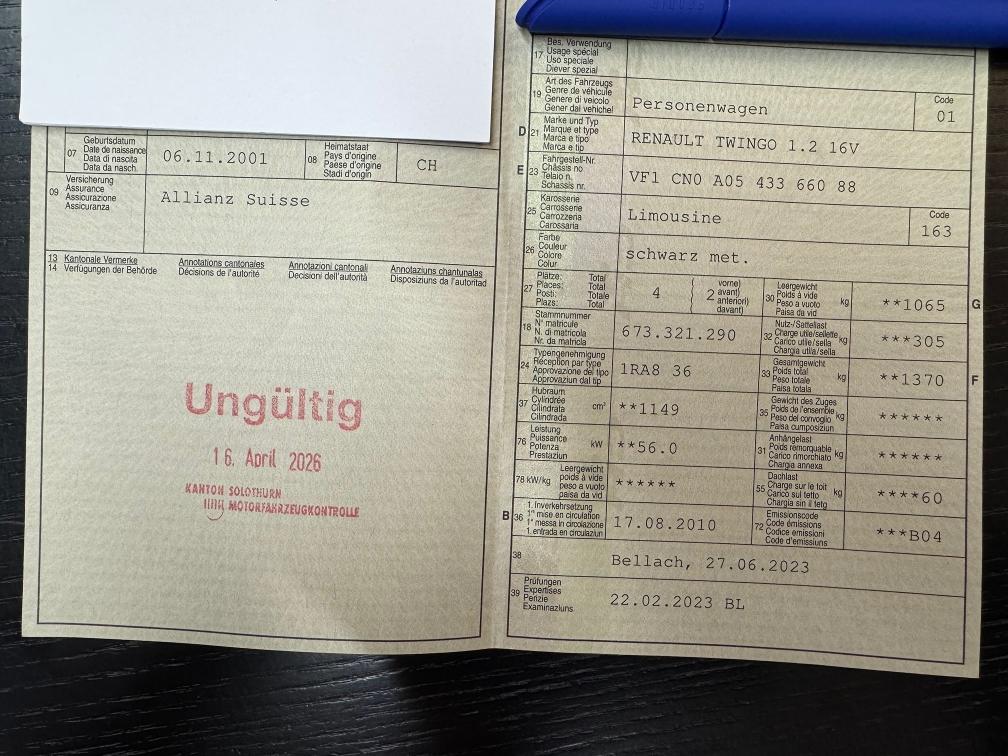 07
Geburtsdatum
Date de naissance
Data di nascita
Data da nasch.
06.11.2001
08
Heimatstaat
Pays d'origine
Paese d'origine
Stadi d'origin
CH
09
Versicherung
Assurance
Assicurazione
Assicuranza
Allianz Suisse
13 Kantonale Vermerke
14 Verfügungen der Behörde
Annotations cantonales
Décisions de l'autorité
Annotazioni cantonali
Decisioni dell'autorità
Annotaziuns chantunalas
Disposiziuns da l'autoritad
Ungültig
16. April 2026
KANTON SOLOTHURN
MOTORFAHRZEUGKONTROLLE
17
Bes. Verwendung
Usage spécial
Uso speciale
Diever spezial
19
Art des Fahrzeugs
Genre de véhicule
Genere di veicolo
Gener dal vehichel
Personenwagen
Code
01
D 21
Marke und Typ
Marque et type
Marca e tipo
Marca e tip
RENAULT TWINGO 1.2 16V
E 23
Fahrgestell-Nr.
Châssis no
Telaio n.
Schassis nr.
VF1 CN0 A05 433 660 88
25
Karosserie
Carrosserie
Carrozzeria
Carossaria
Limousine
Code
163
26
Farbe
Couleur
Colore
Colur
schwarz met.
27
Plätze: Total
Places: Total
Posti: Totale
Plazs: Total
4
2
vorne)
avant)
anteriori)
davant)
30
Leergewicht
Poids à vide
Peso a vuoto
Paisa da vid
kg
**1065
G
18
Stammnummer
N° matricule
N. di matricola
Nr. da matricla
673.321.290
32
Nutz-/Sattellast
Charge utile/sellette
Carico utile/sella
Chargia utila/sella
kg
***305
24
Typengenehmigung
Réception par type
Approvazione del tipo
Approvaziun dal tip
1RA8 36
33
Gesamtgewicht
Poids total
Peso totale
Paisa totala
kg
**1370
F
37
Hubraum
Cylindrée
Cilindrata
Cilindrada
cm³
**1149
35
Gewicht des Zuges
Poids de l'ensemble
Peso del convoglio
Paisa cumposiziun
kg
******
76
Leistung
Puissance
Potenza
Prestaziun
kW
**56.0
31
Anhängelast
Poids remorquable
Carico rimorchiato
Chargia annexa
kg
******
78 kW/kg
Leergewicht
poids à vide
peso a vuoto
paisa da vid
******
55
Dachlast
Charge sur le toit
Carico sul tetto
Chargia sin il tetg
kg
****60
B 36
1. Inverkehrsetzung
1re mise en circulation
1a messa in circolazione
1. entrada en circulaziun
17.08.2010
72
Emissionscode
Code émissions
Codice emissioni
Code d'emissiuns
***B04
38
Bellach, 27.06.2023
39
Prüfungen
Expertises
Perizie
Examinaziuns
22.02.2023 BL